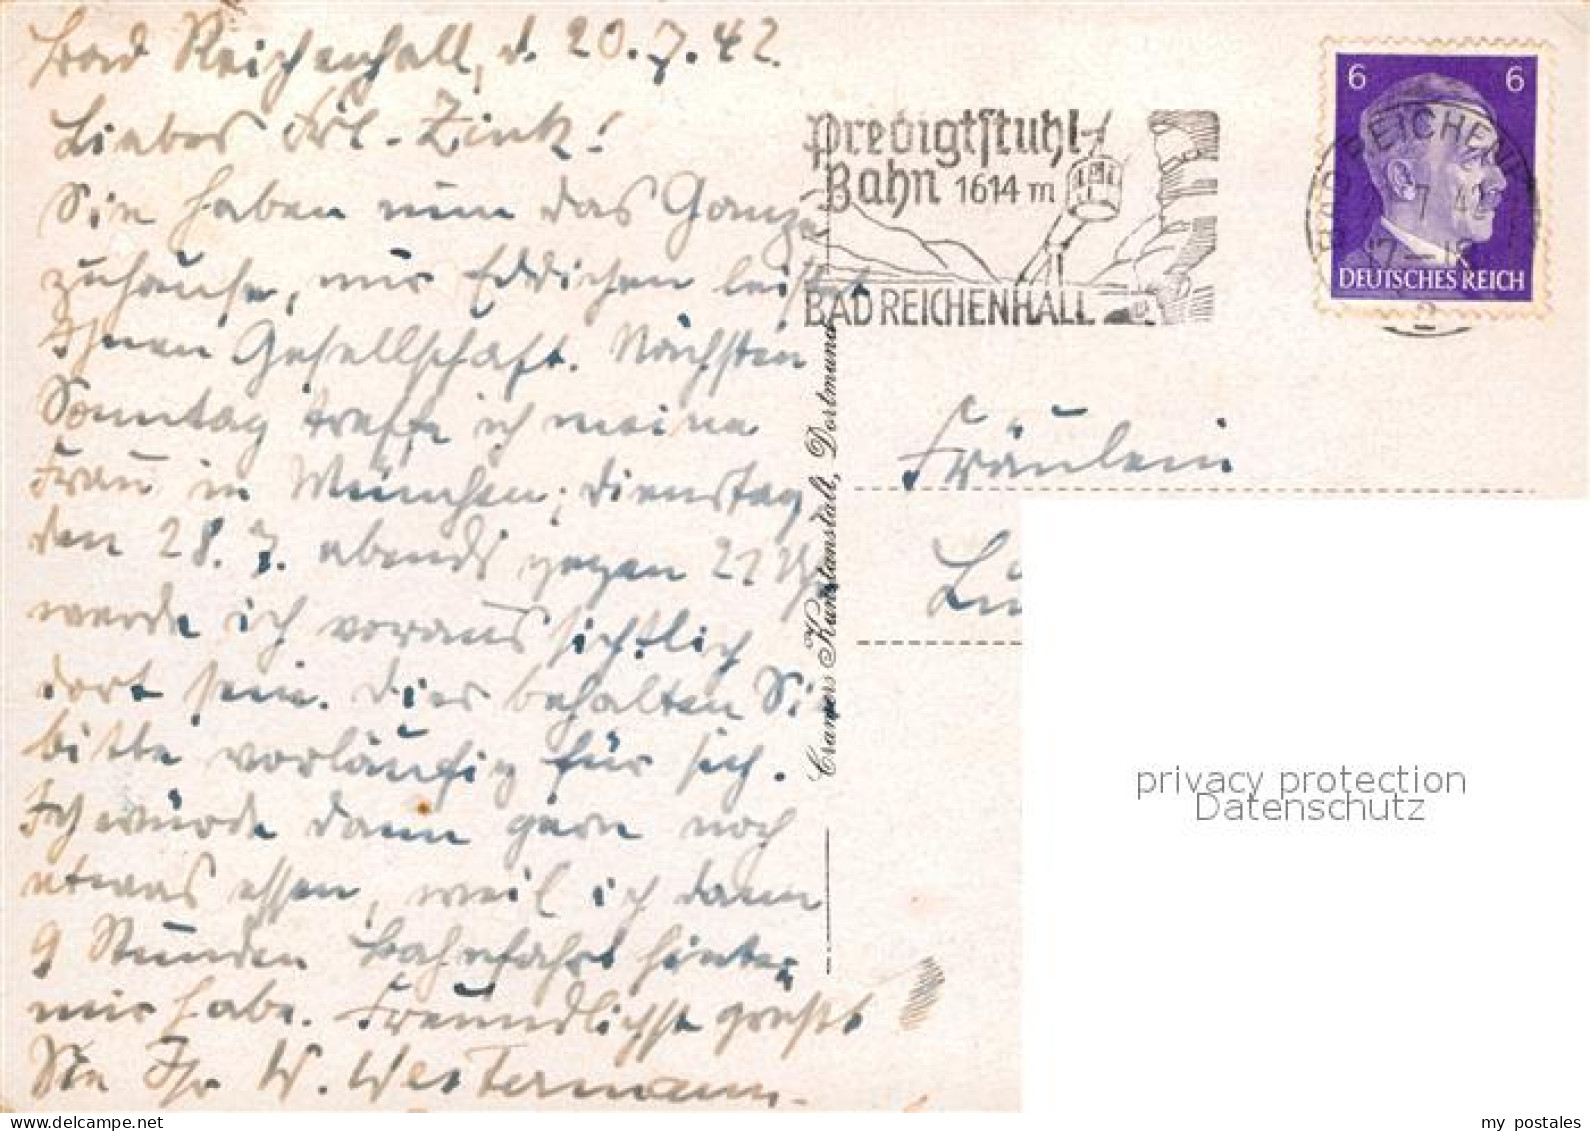 Bad Reichenhall, d. 20.7.42.
Liebes Frl. Zink!
Sie haben nun das Ganze
zuhause, nur Eddichen leistet
Ihnen Gesellschaft. Nächsten
Sonntag treffe ich meine
Frau in München; Dienstag
den 28.7. abends gegen 21 Uhr
werde ich voraussichtlich
dort sein. Dies behalten Sie
bitte vorläufig für sich.
Ich würde dann gern noch
etwas essen, weil ich dann
9 Stunden Bahnfahrt hinter
mir habe. Freundlichst grüßt
Sie Ihr W. Westermann.
Cramers Kunstanstalt, Dortmund
Predigtstuhl-
Bahn 1614 m
BAD REICHENHALL
6 6
DEUTSCHES REICH
BAD REICHENHALL
7 42
17-18
2
Fräulein
privacy protection
Datenschutz
my postales